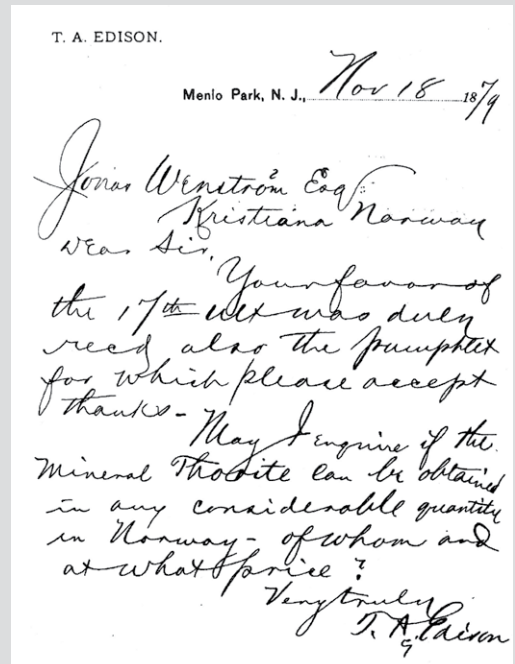 T. A. EDISON.
Menlo Park, N. J., Nov 18 1879
Jonas Wenström Esq
Kristiana Norway
Dear Sir,
Your favor of
the 17th ult was duly
recd also the pamphlet
for which please accept
thanks-
May I enquire if the
Mineral Thorite can be obtained
in any considerable quantity
in Norway- of whom and
at what price?
Very truly
T. A. Edison